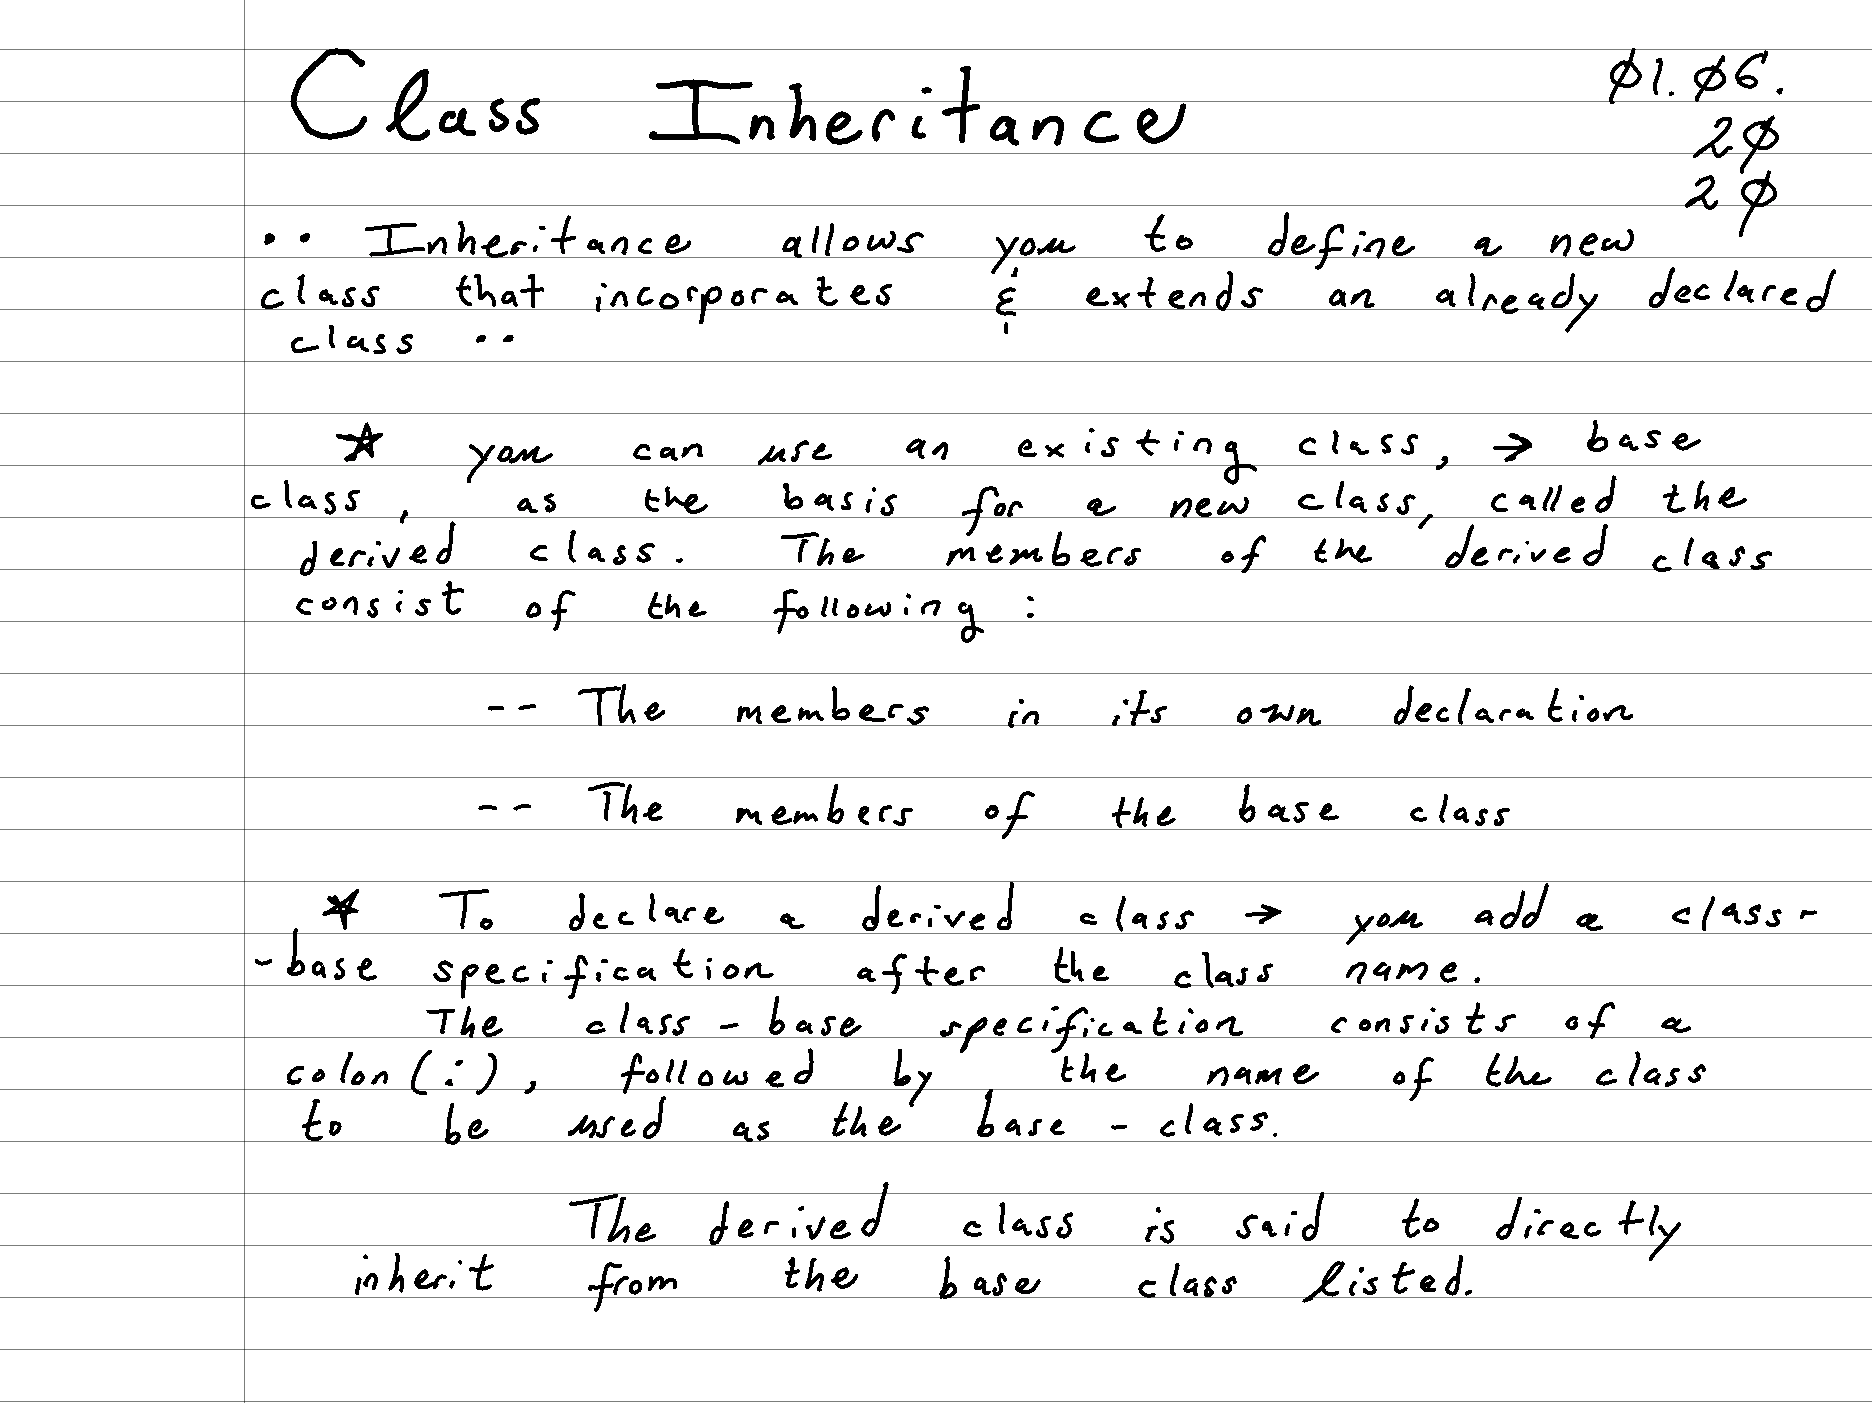 Class Inheritance
Ø1.Ø6.
2Ø
2Ø
•• Inheritance allows you to define a new
class that incorporates & extends an already declared
class ••
★ you can use an existing class, → base
class, as the basis for a new class, called the
derived class. The members of the derived class
consist of the following :
-- The members in its own declaration
-- The members of the base class
★ To declare a derived class → you add a class-
-base specification after the class name.
The class - base specification consists of a
colon (:), followed by the name of the class
to be used as the base - class.
The derived class is said to directly
inherit from the base class listed.